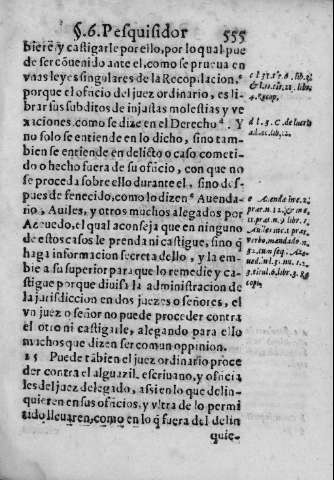 §.6. Pesquisidor 555
biere y castigarle por ello, por lo qual pue
de ser cõuenido ante el, como se prueua en
vnas leyes singulares de la Recopilacion.
porque el oficio del juez ordinario, es li-
brar sus subditos de injustas molestias y ve
xaciones como se dize en el Derecho d. Y
no solo se entiende en lo dicho, sino tam-
bien se entiende en delicto o caso cometi-
do o hecho fuera de su oficio, con que no
se proceda sobre ello durante el, sino des-
pues de fenecido, como lo dizen e Auenda-
rio, Auiles, y otros muchos alegados por
Azeuedo, el qual aconseja que en ninguno
de estos casos le prenda ni castigue, sino q̃
haga informacion secreta dello, y la em-
bie a su superior para que lo remedie y ca-
stigue porque diuisa la administracion de
la jurisdiccion en dos juezes o señores, el
vn juez o señor no puede proceder contra
el otro ni castigarle, alegando para ello
muchos que dizen ser comun oppinion.
25 Puede tãbien el juez ordinario proce
der contra el alguazil, escriuano, y oficia
les del juez delegado, assi en lo que delin-
quieren en sus oficios, y vltra de lo permi
tido lleuaren, como en lo q̃ fuera del delin
quie-
4. recop.
d l. 3. C. de
e Auenda in c. 2.
Auiles in c. 1. præ.
verbo, mandado. n.